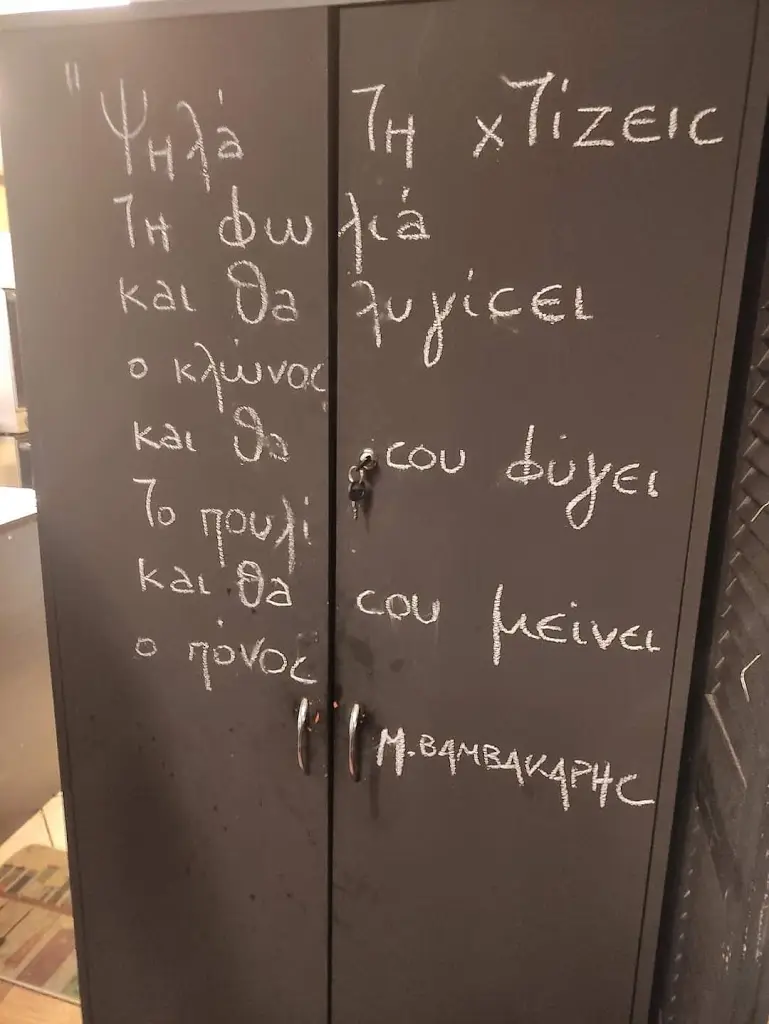 " Ψηλά τη χτίζεις
τη φωλιά
και θα λυγίσει
ο κλώνος
και θα σου φύγει
το πουλί
και θα σου μείνει
ο πόνος
Μ. ΒΑΜΒΑΚΑΡΗΣ